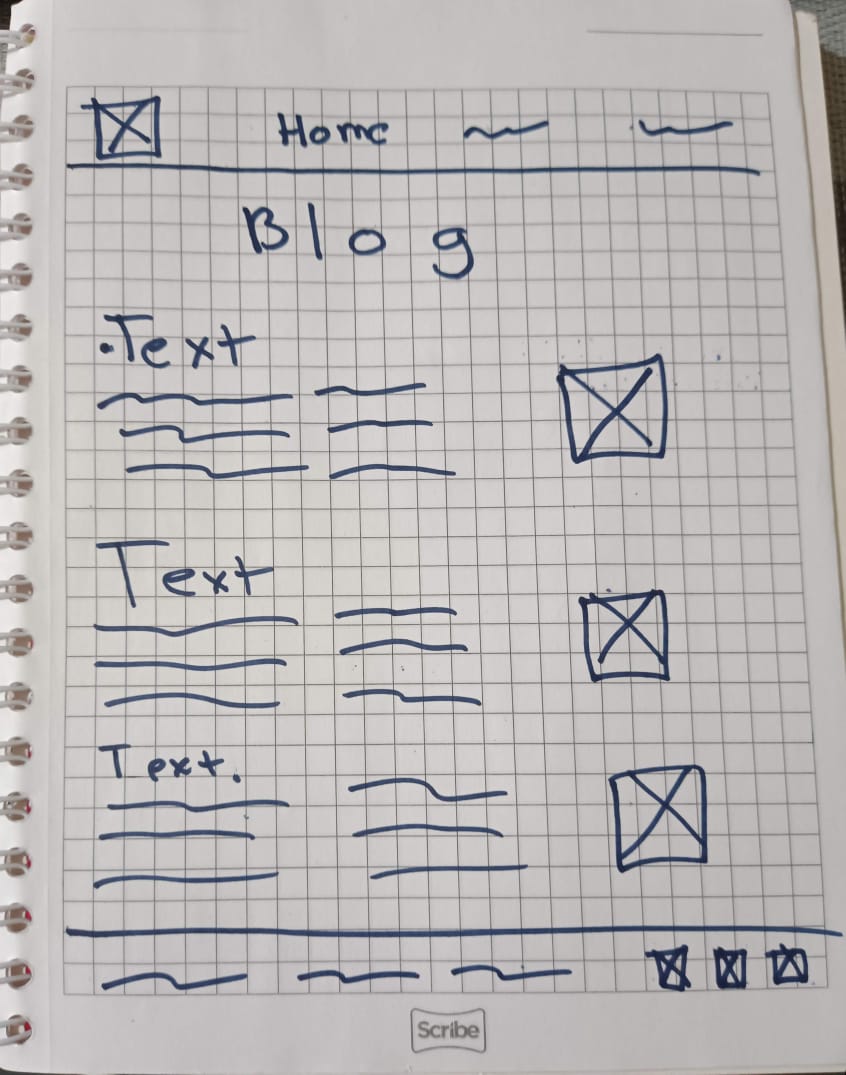 Home
Blog
.Text
Text
Text.
Scribe